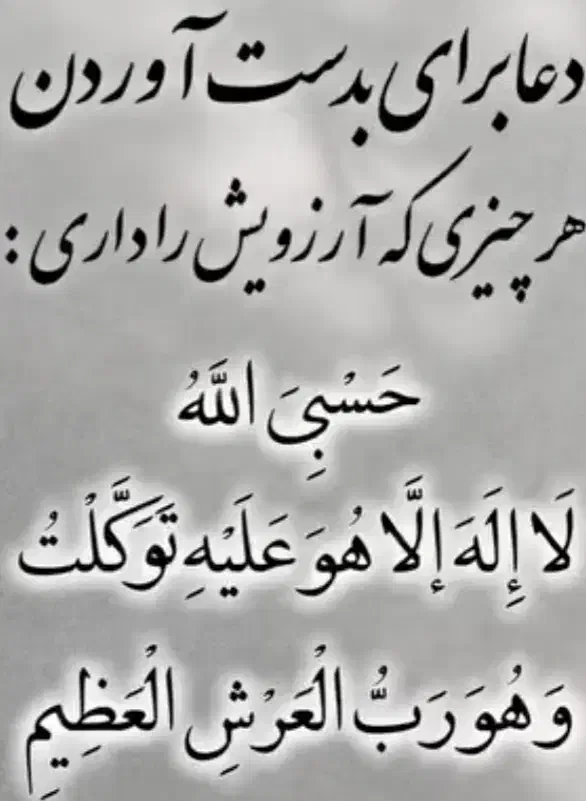 دعا برای بدست آوردن
هر چیزی که آرزویش را داری :
حَسْبِيَ اللَّهُ
لَا إِلَهَ إِلَّا هُوَ عَلَيْهِ تَوَكَّلْتُ
وَهُوَ رَبُّ الْعَرْشِ الْعَظِيمِ